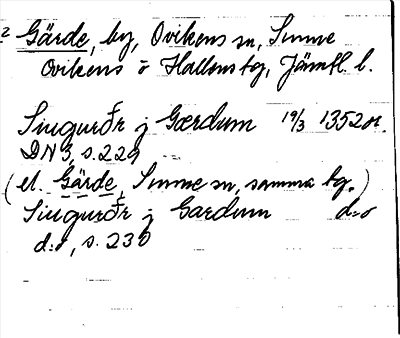 2 Gärde, by, Ovikens sn, Sunne
Ovikens o Hallens tg, Jämtl. l.
Siugurðr j Gærdum 19/3 1352 or.
DN 3, s. 229
(el. Gärde, Sunne sn, samma tg.)
Siugurðr j Gardum d:o
d:o, s. 230